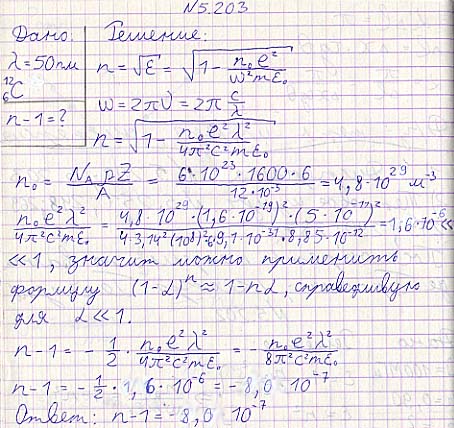 №5.203
Дано: Решение:
λ=50пм n=√ε = √(1 - n₀e²/ω²mε₀)
¹²₆C ω=2πν=2π c/λ
n-1=? n=√(1 - n₀e²λ²/4π²c²mε₀)
n₀ = N_A ρZ/A = 6·10²³·1600·6/12·10⁻³ = 4,8·10²⁹ м⁻³
n₀e²λ²/4π²c²mε₀ = 4,8·10²⁹·(1,6·10⁻¹⁹)²·(5·10⁻¹¹)²/4·3,14²(10⁸)²·9·9,1·10⁻³¹·8,85·10⁻¹² = 1,6·10⁻⁶ ≪
≪1, значит можно применить
формулу (1-α)ⁿ ≈ 1-nα, справедливую
для α≪1.
n-1 = - 1/2 · n₀e²λ²/4π²c²mε₀ = - n₀e²λ²/8π²c²mε₀
n-1 = - 1/2 · 1,6·10⁻⁶ = -8,0·10⁻⁷
Ответ: n-1=-8,0 10⁻⁷